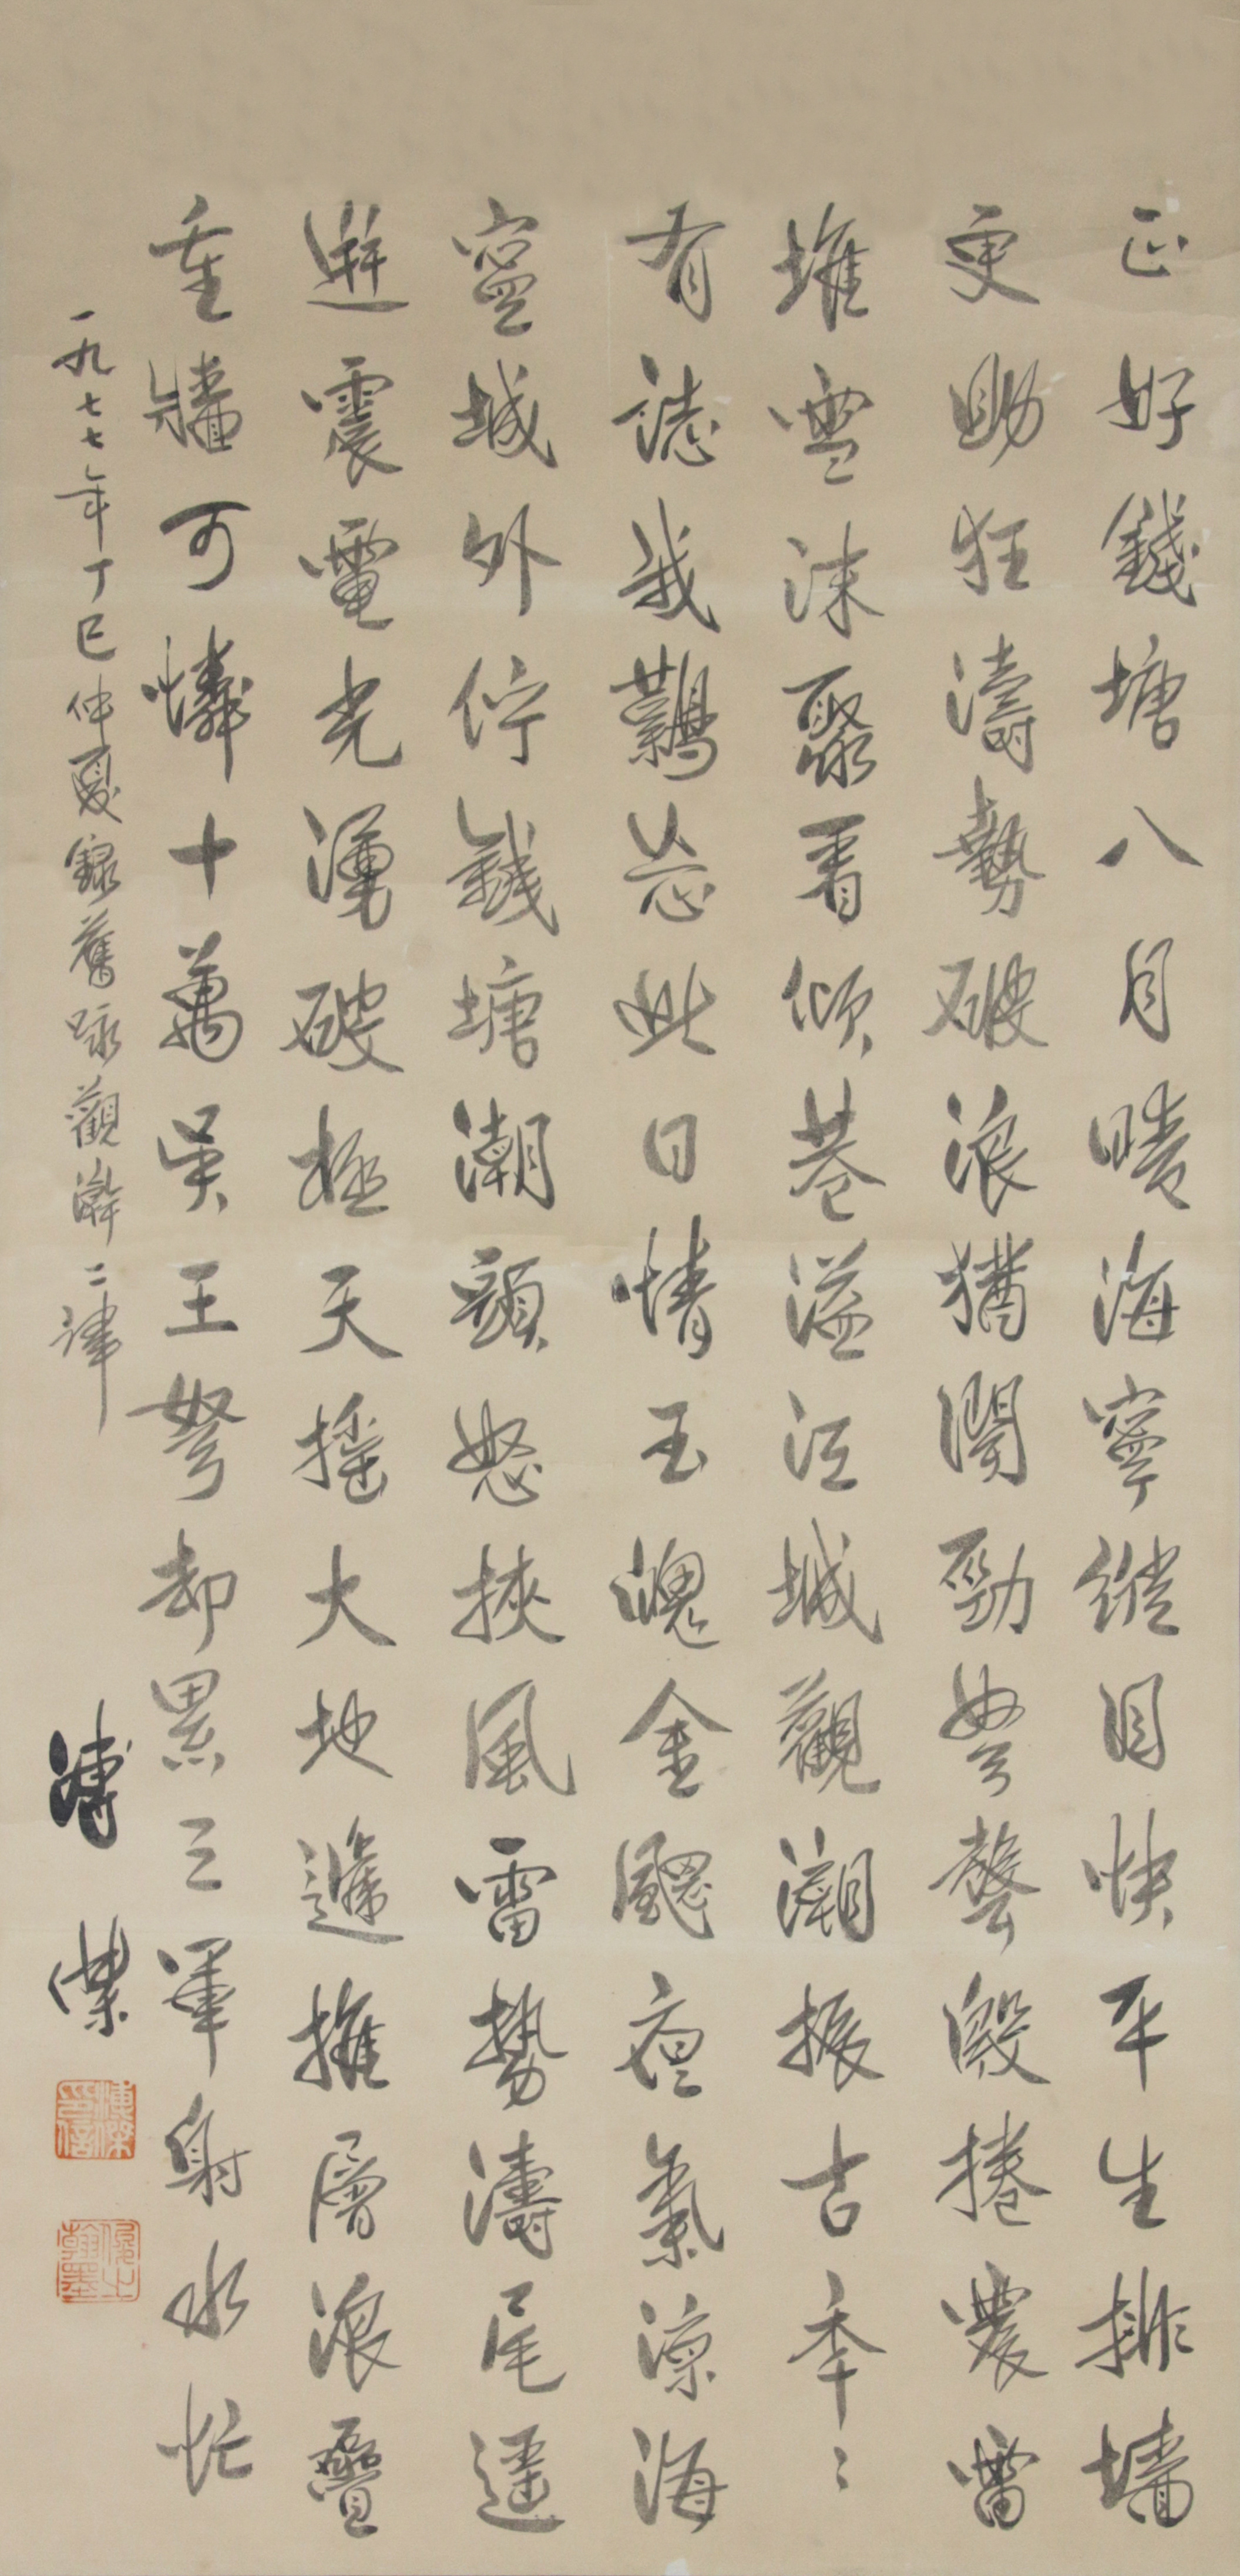 正好錢塘八月晴海寧縱目快平生排墻
更助狂濤勢破浪猶聞勁弩聲捲雷
堆雪沫聚看傾巷溢江城觀潮振古年〻
有誌我難忘此日情玉魄金颸夜氣涼海
寧城外佇錢塘潮頭怒挾風雷勢濤尾遥
迸震電光湧破極天搖大地遞擁層浪疊
重牆可憐十萬吳王弩却累三軍射水忙
一九七七年丁巳仲夏錄舊詠觀潮二律
溥傑
溥傑印信
俊之翰墨